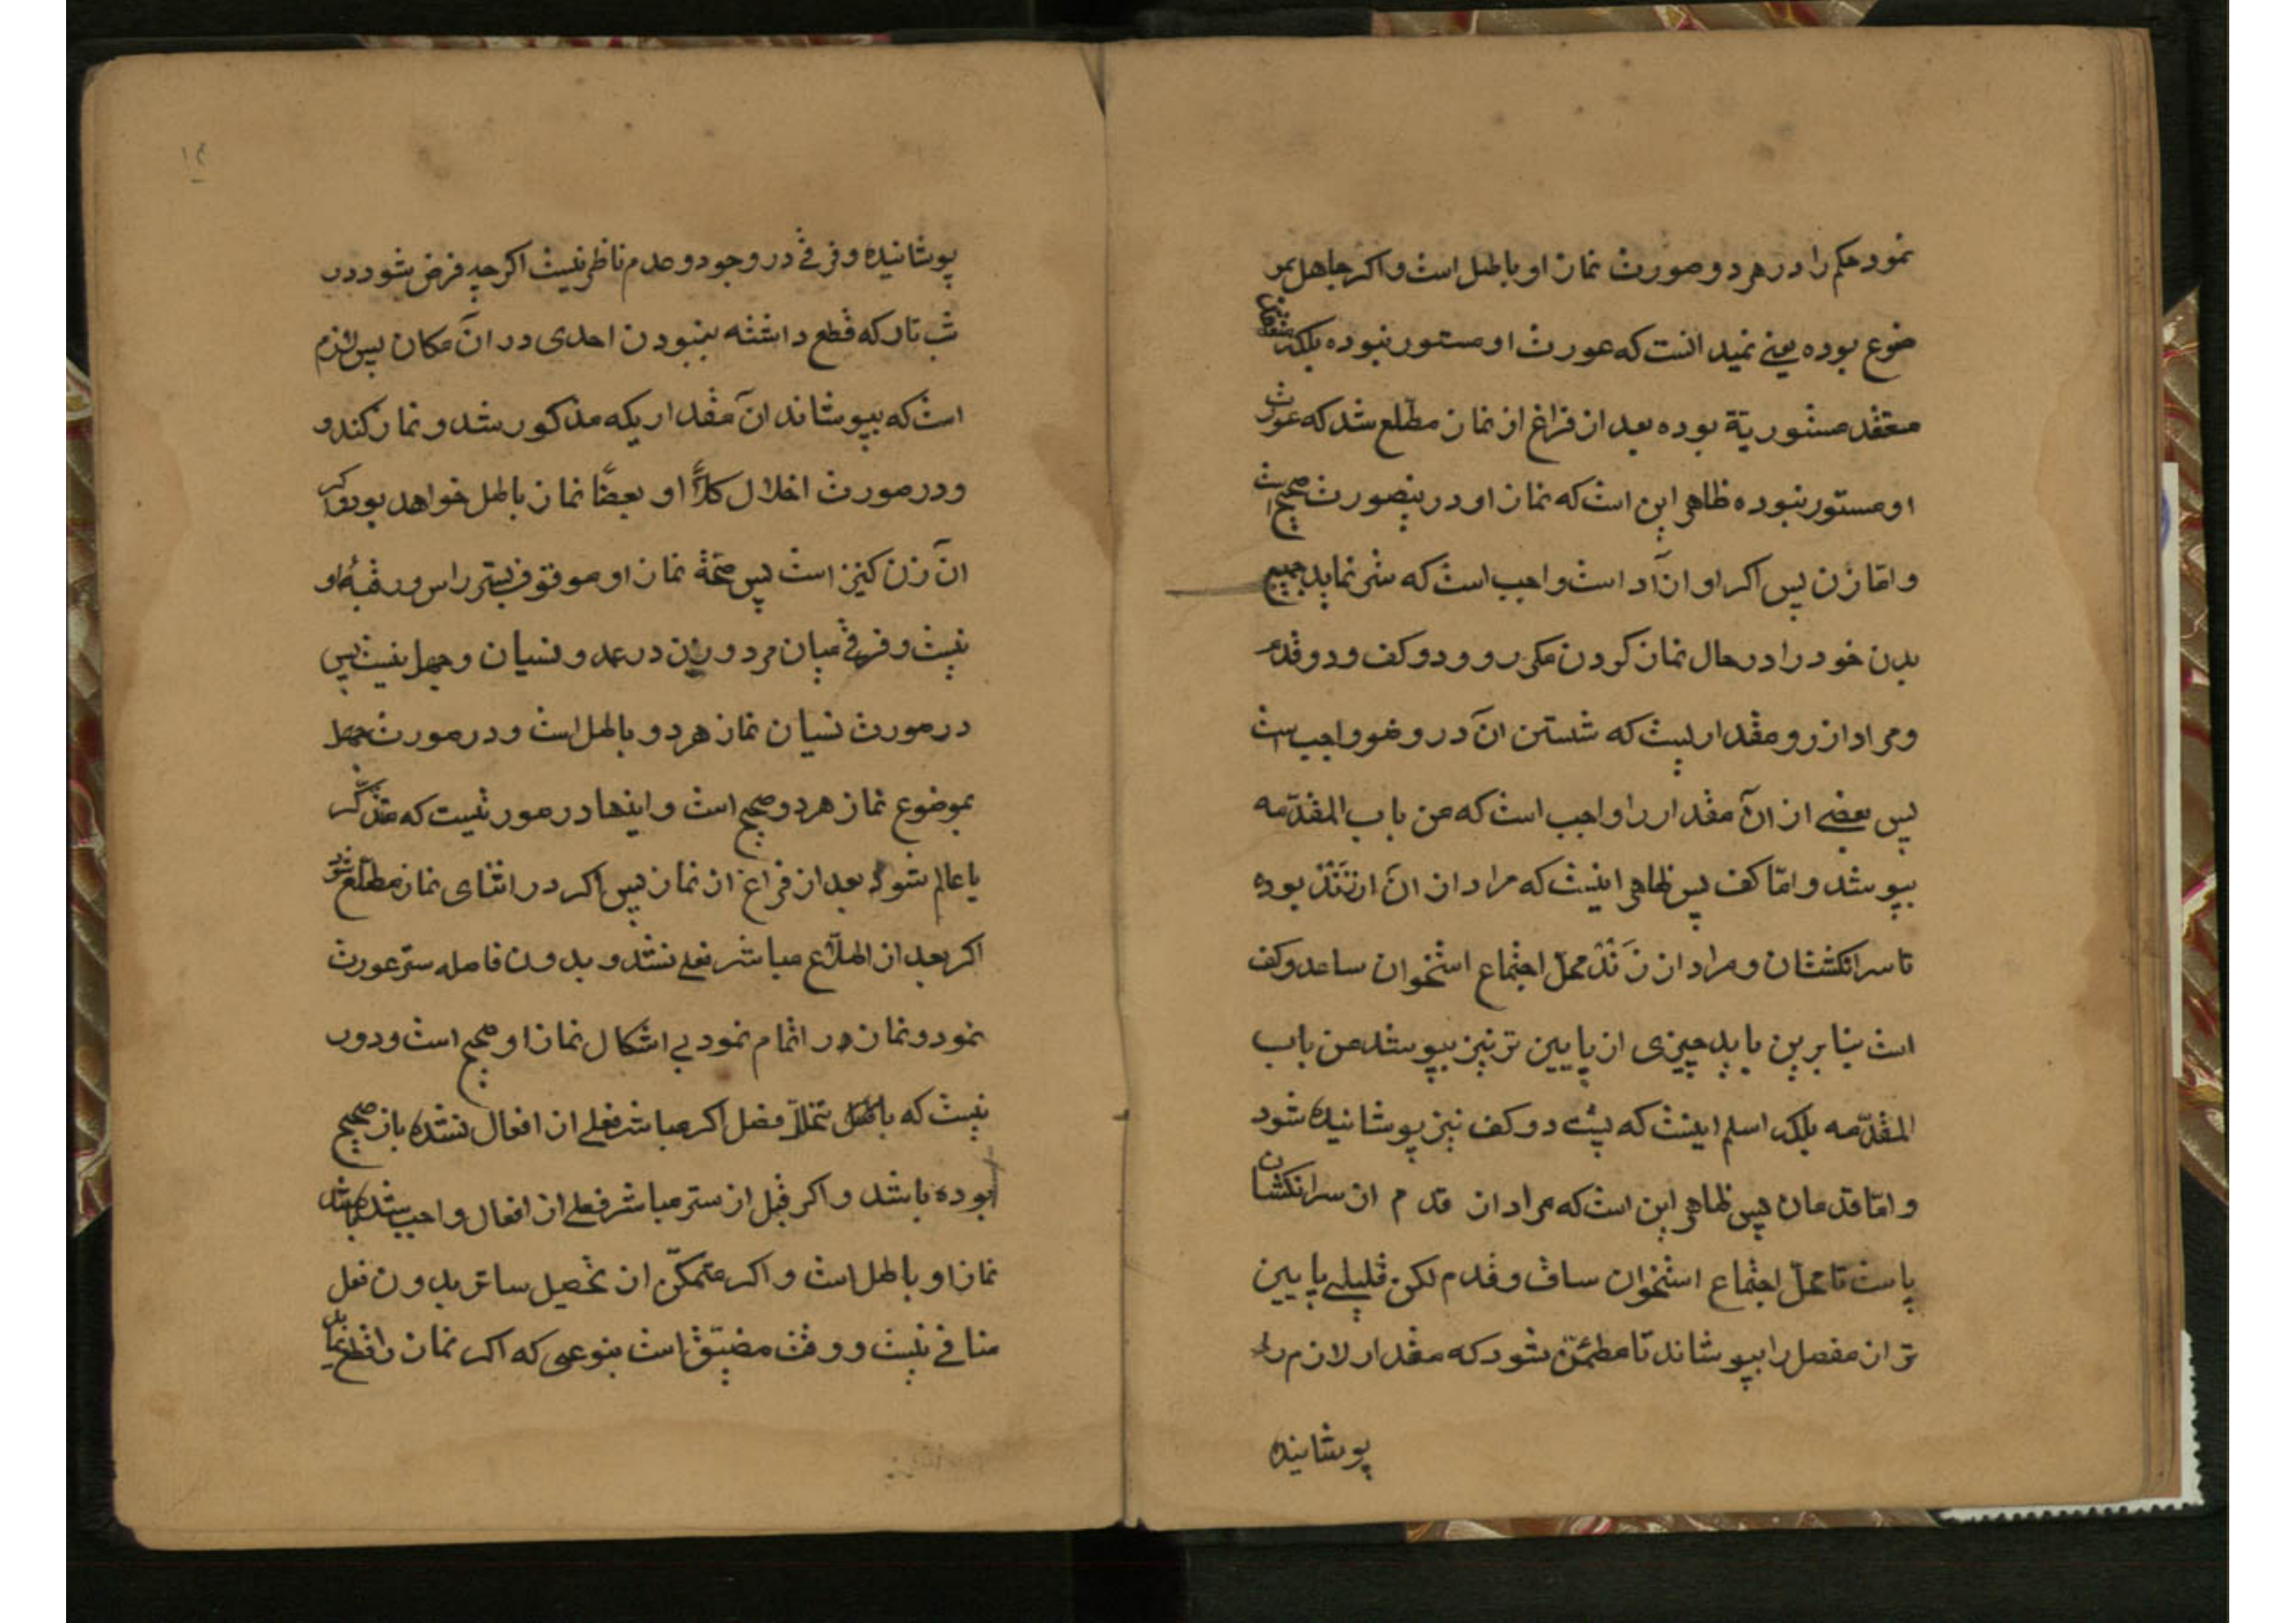 نمود حکم را در هر دو صورت نماز او باطل است و اکر جاهل بمو
ضوع بوده یعنے نمیدانست که عورت او مستور نبوده بلکه
معتقد مستوریّة بوده بعد از فراغ از نماز مطّلع شد که عورت
او مستور نبوده ظاهر این است که نماز او در ینصورت صحیح است
و امّا زن پس اکر او ازآد است واجب است که ستر نماید جمیع
بدن خود را در حال نماز کردن مکر رو و دو کف و دو قدم
و مراد از رو مقداریست که شستن آن در وضو واجب است
پس بعضے از آن مقدار را واجب است که من باب المقدّمه
بپوشد و امّا کف پس ظاهر اینست که مراد از آن از زند بوده
تا سر انکشتان و مراد از زَند محلّ اجتماع استخوان ساعد و کف
است بنابرین باید چیزی از پایین تر نیز بپوشد من باب
المقدّمه بلکه اسلم اینست که پشت دو کف نیز پوشانیده شود
و امّا قدمان پس ظاهر این است که مراد از قدم از سر انکشتان
پاست تا محلّ اجتماع استخوان ساق و قدم لکن قلیلے پایین
تر از مفصل را بپوشاند تا مطمئن شود که مقدار لازم را
پوشانیده
۱۳
پوشانیده و فرقے در وجود و عدم ناظر نیست اکر چه فرض شود در
شب تار که قطع داشته بنبودن احدی در آن مکان پس لازم
است که بپوشاند آن مقداریکه مذکور شد و نماز کند و
و در صورت اخلال کلاًّ او بعضًا نماز باطل خواهد بود و اکر
آن زن کنیز است پس صحّة نماز او موقوف بستر راس و رقبهٔ او
نیست و فرقے میان مرد و زن در عمد و نسیان و جهل نیست پس
در صورت نسیان نماز هر دو باطل است و در صورت جهل
بموضوع نماز هر دو صحیح است و اینها در صورتیست که متذکّر
یا عالم شود بعد از فراغ از نماز پس اکر در اثنای نماز مطّلع شود
اکر بعد از اطّلاع مباشر فعلے نشد و بدون فاصله ستر عورت
نمود و نماز را اتمام نمود بے اشکال نماز او صحیح است و دور
نیست که با تخلّل فصل اکر مباشر فعلے از افعال نشده باز صحیح
بوده باشد و اکر قبل از ستر مباشر فعلے از افعال واجب شده باشد
نماز او باطل است و اکر متمکّن از تحصیل ساتر بدون فعل
منافے نیست و وقت مضیّق است بنوعی که اکر نماز را قطع نماید